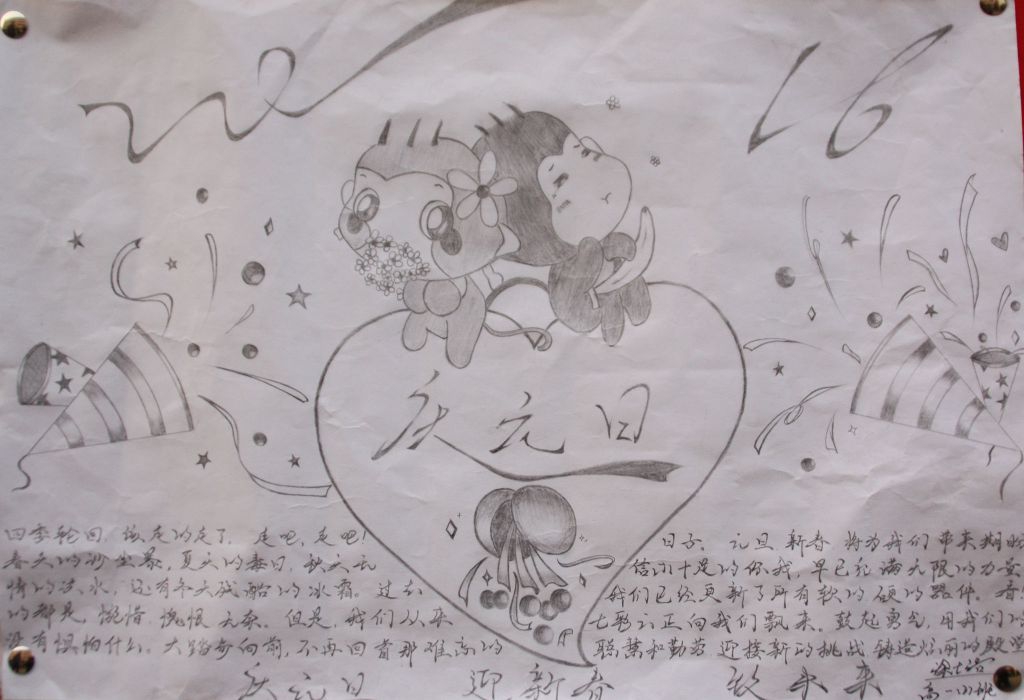 2016
庆元日
四季轮回,该走的走了,走吧,走吧!
春天的沙尘暴,夏天的毒日,秋天无
情的洪水,还有冬天战船的冰霜。过去
的都是,惋惜,愧恨,无奈。但是,我们从来
没有惧怕什么。大踏步向前,不再回首那难忘的
日子。元旦,新春 将为我们带来期盼
信心十足的你我,早已充满无限的力量
我们已经更新了所有软的硬的器件。看
七彩云正向我们飘来。鼓起勇气,用我们的
聪慧和勤劳 迎接新的挑战 铸造炫丽的殿堂
庆元日 迎新春 放未来